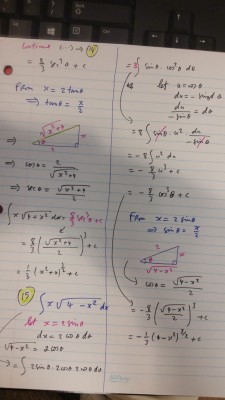 (14)
= 8/3 sec³θ + c
From x = 2tanθ
⇒ tanθ = x/2
√x²+4
x
θ
2
⇒ cosθ = 2/√x²+4
⇒ secθ = √x²+4/2
∫x√4+x² dx = 8/3 sec³θ + c
= 8/3 (√x²+4/2)³ + c
= 1/3 (x²+4)^3/2 + c
(15) ∫x√4 - x² dx
let x = 2sinθ
dx = 2cosθ dθ
√4-x² = 2cosθ
⇒ = ∫2sinθ · 2cosθ · 2cosθ dθ
= 8∫sinθ · cos²θ dθ
let u = cosθ
du = -sinθ dθ
du/-sinθ = dθ
= 8∫sinθ · u² · du/-sinθ
= -8∫u² du
= -8/3 u³ + c
= -8/3 cos³θ + c
From x = 2sinθ
⇒ sinθ = x/2
2
x
θ
√4-x²
cosθ = √4-x²/2
= -8/3 (√4-x²/2)³ + c
= -1/3 (4-x²)^3/2 + c